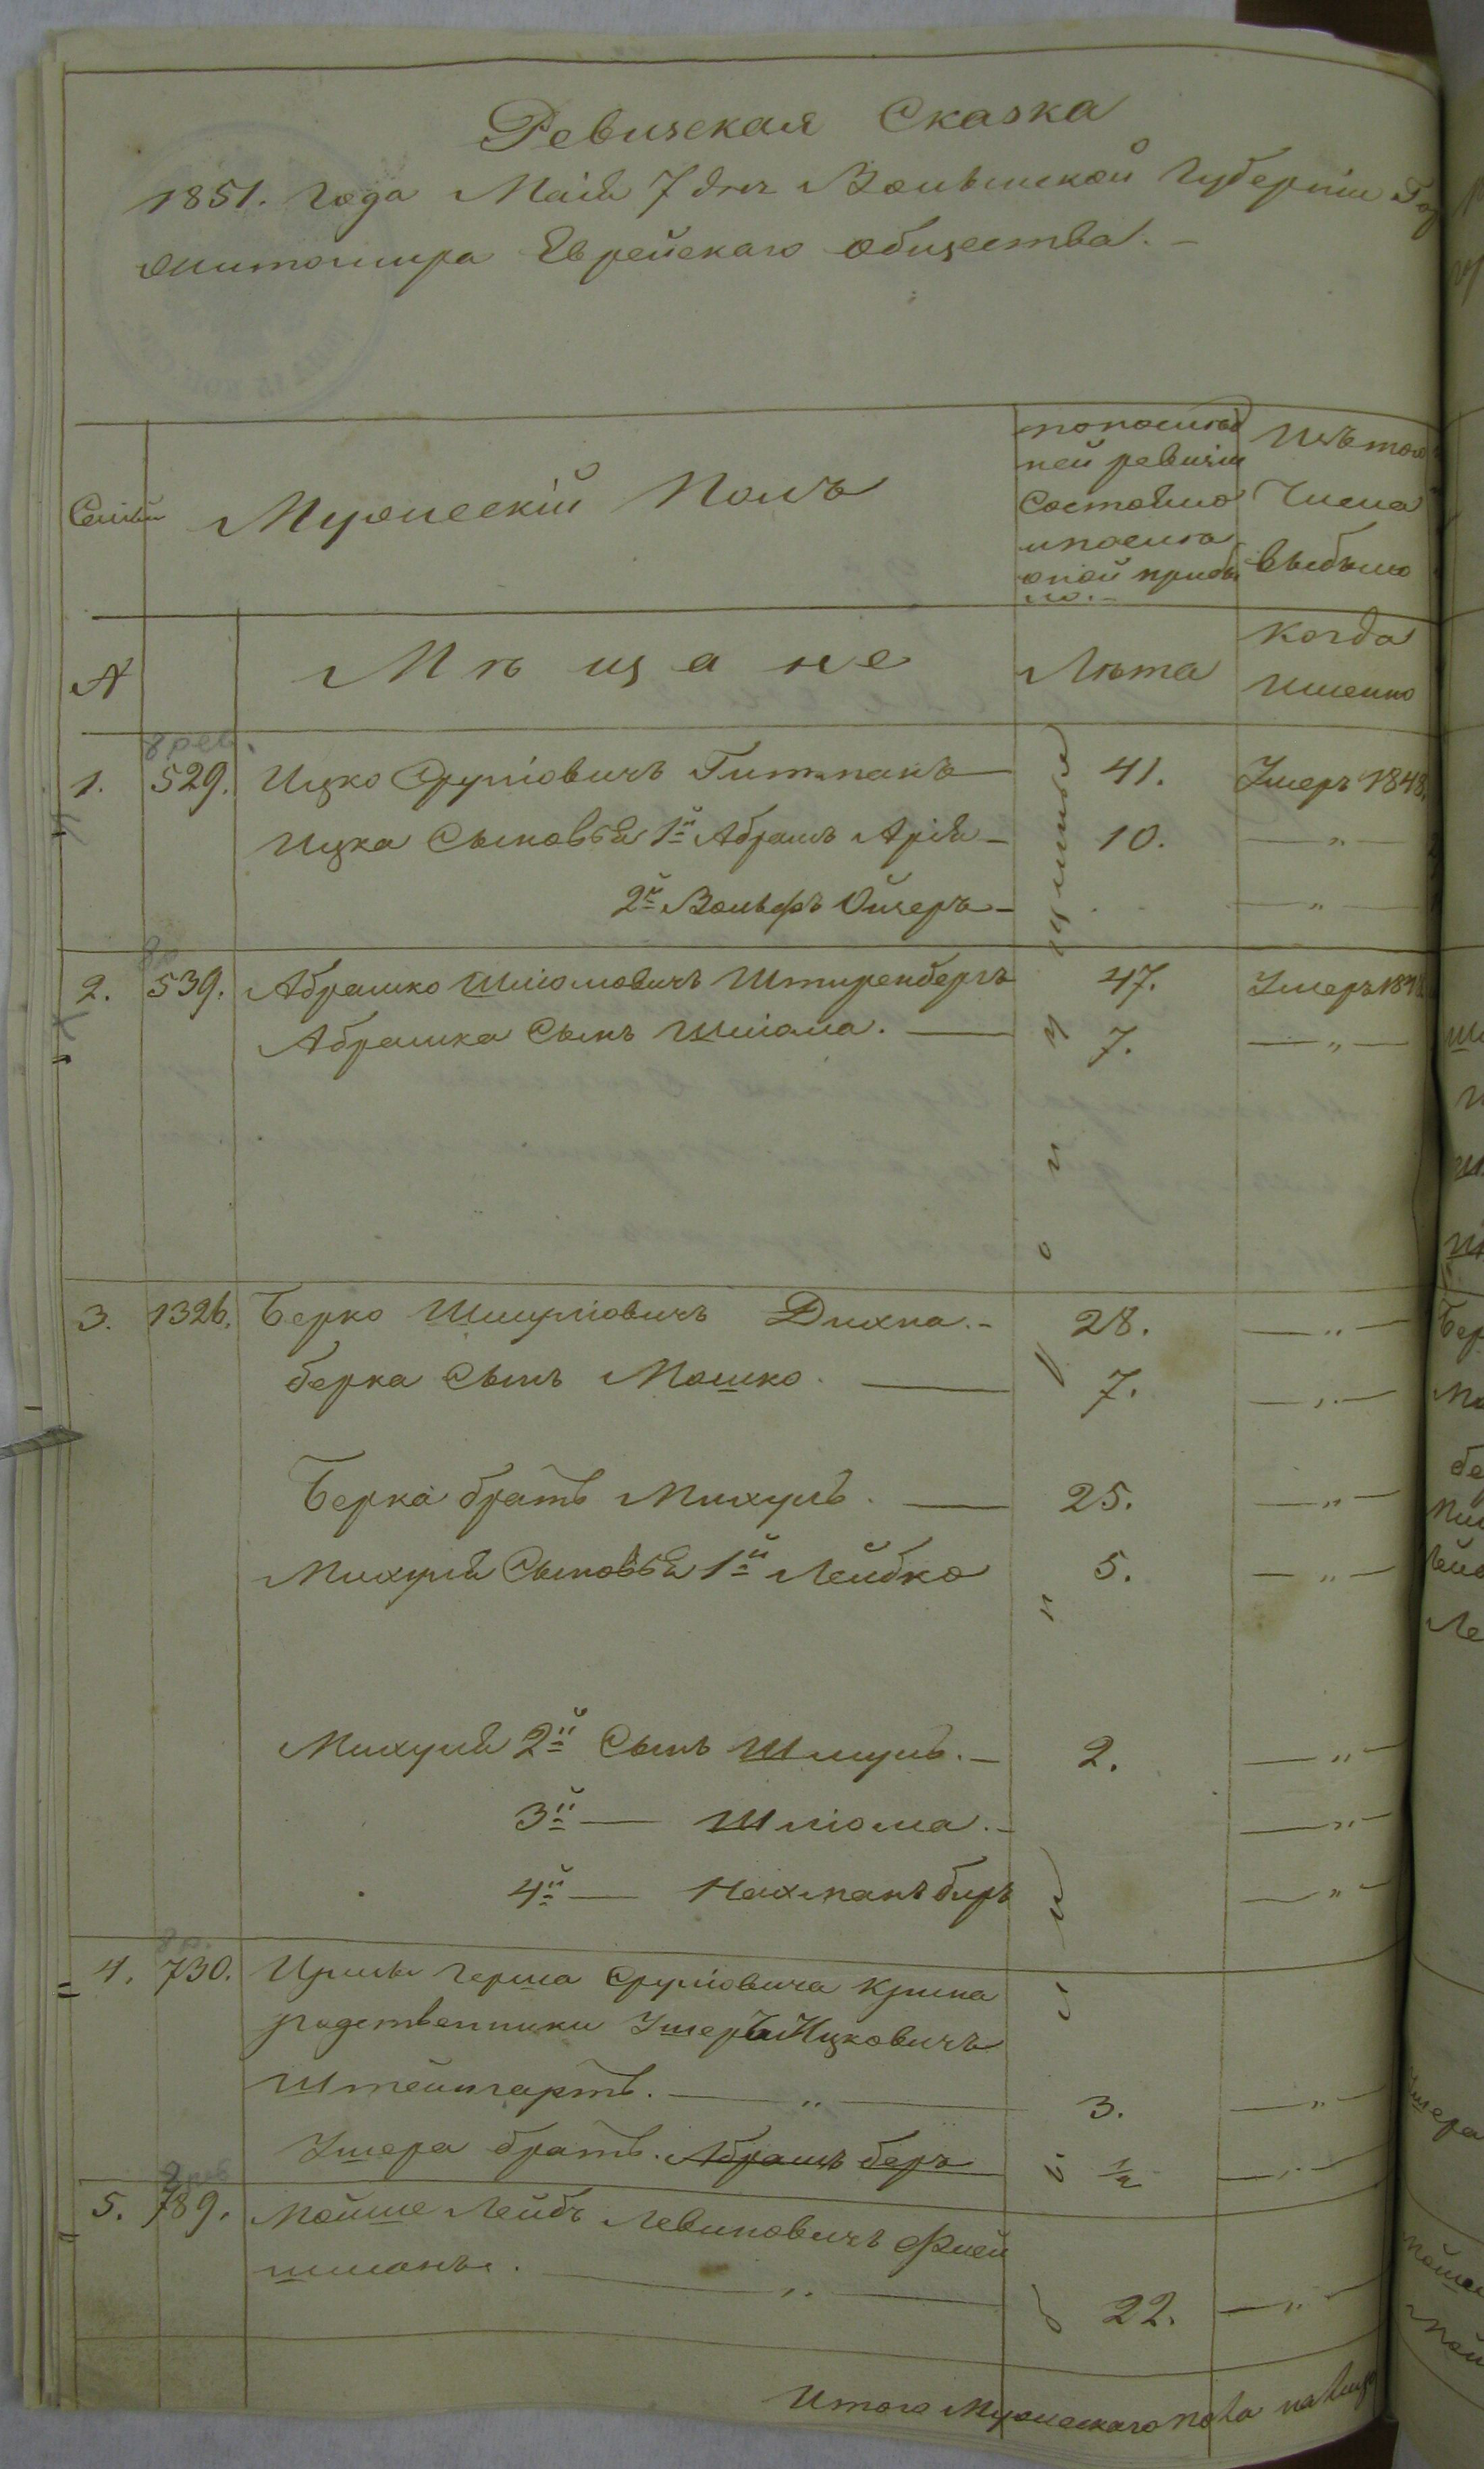 Ревизская Сказка
1851. Года Маія 7 дня Волынской Губерніи Гор
Житомира Еврейскаго общества. –
Семьи
Мужескій Полъ
попослѣд
ней ревизіи
Состояло
ипослѣ
оной прибы
ло. –
Изътого
Числа
выбыло
№
Мѣщане
Лѣта
Когда
Именно
8 рев.
1. 529. Ицко Сруліовичъ Гитманъ — 41. Умеръ 1848.
Ицка Сыновья 1й Абрамъ Арія – 10. — „ —
2й Вольфъ Ойзеръ – . — „ —
2. 539. Абрашко Шліомовичъ Штиренбергъ 47. Умеръ 184
Абрашка Сынъ Шліома. — 7. — „ —
3. 1326. Берко Шмуліовичъ Духна. – 28. — „ —
берка Сынъ Мошко. — 7. — „ —
Берка братъ Михуль. — 25. — „ —
Михуля Сыновья 1й Лейбко 5. — „ —
Михуля 2й Сынъ Шмуль. – 2. — „ —
3й — Шліома. – — „ —
4й — Нахманъ биръ — „ —
8 р.
4. 730. Ирша Герша Сруліовича Крина
родственники Умеръ Ицковичъ
Штейнгартъ. — „ — 3. — „ —
Умера братъ. Абрамъ беръ ½ — „ —
5. 789. Мойше Лейбъ Левиковичъ Флей
шманъ. — „ — 22. — „ —
Итого Мужескаго пола налицо